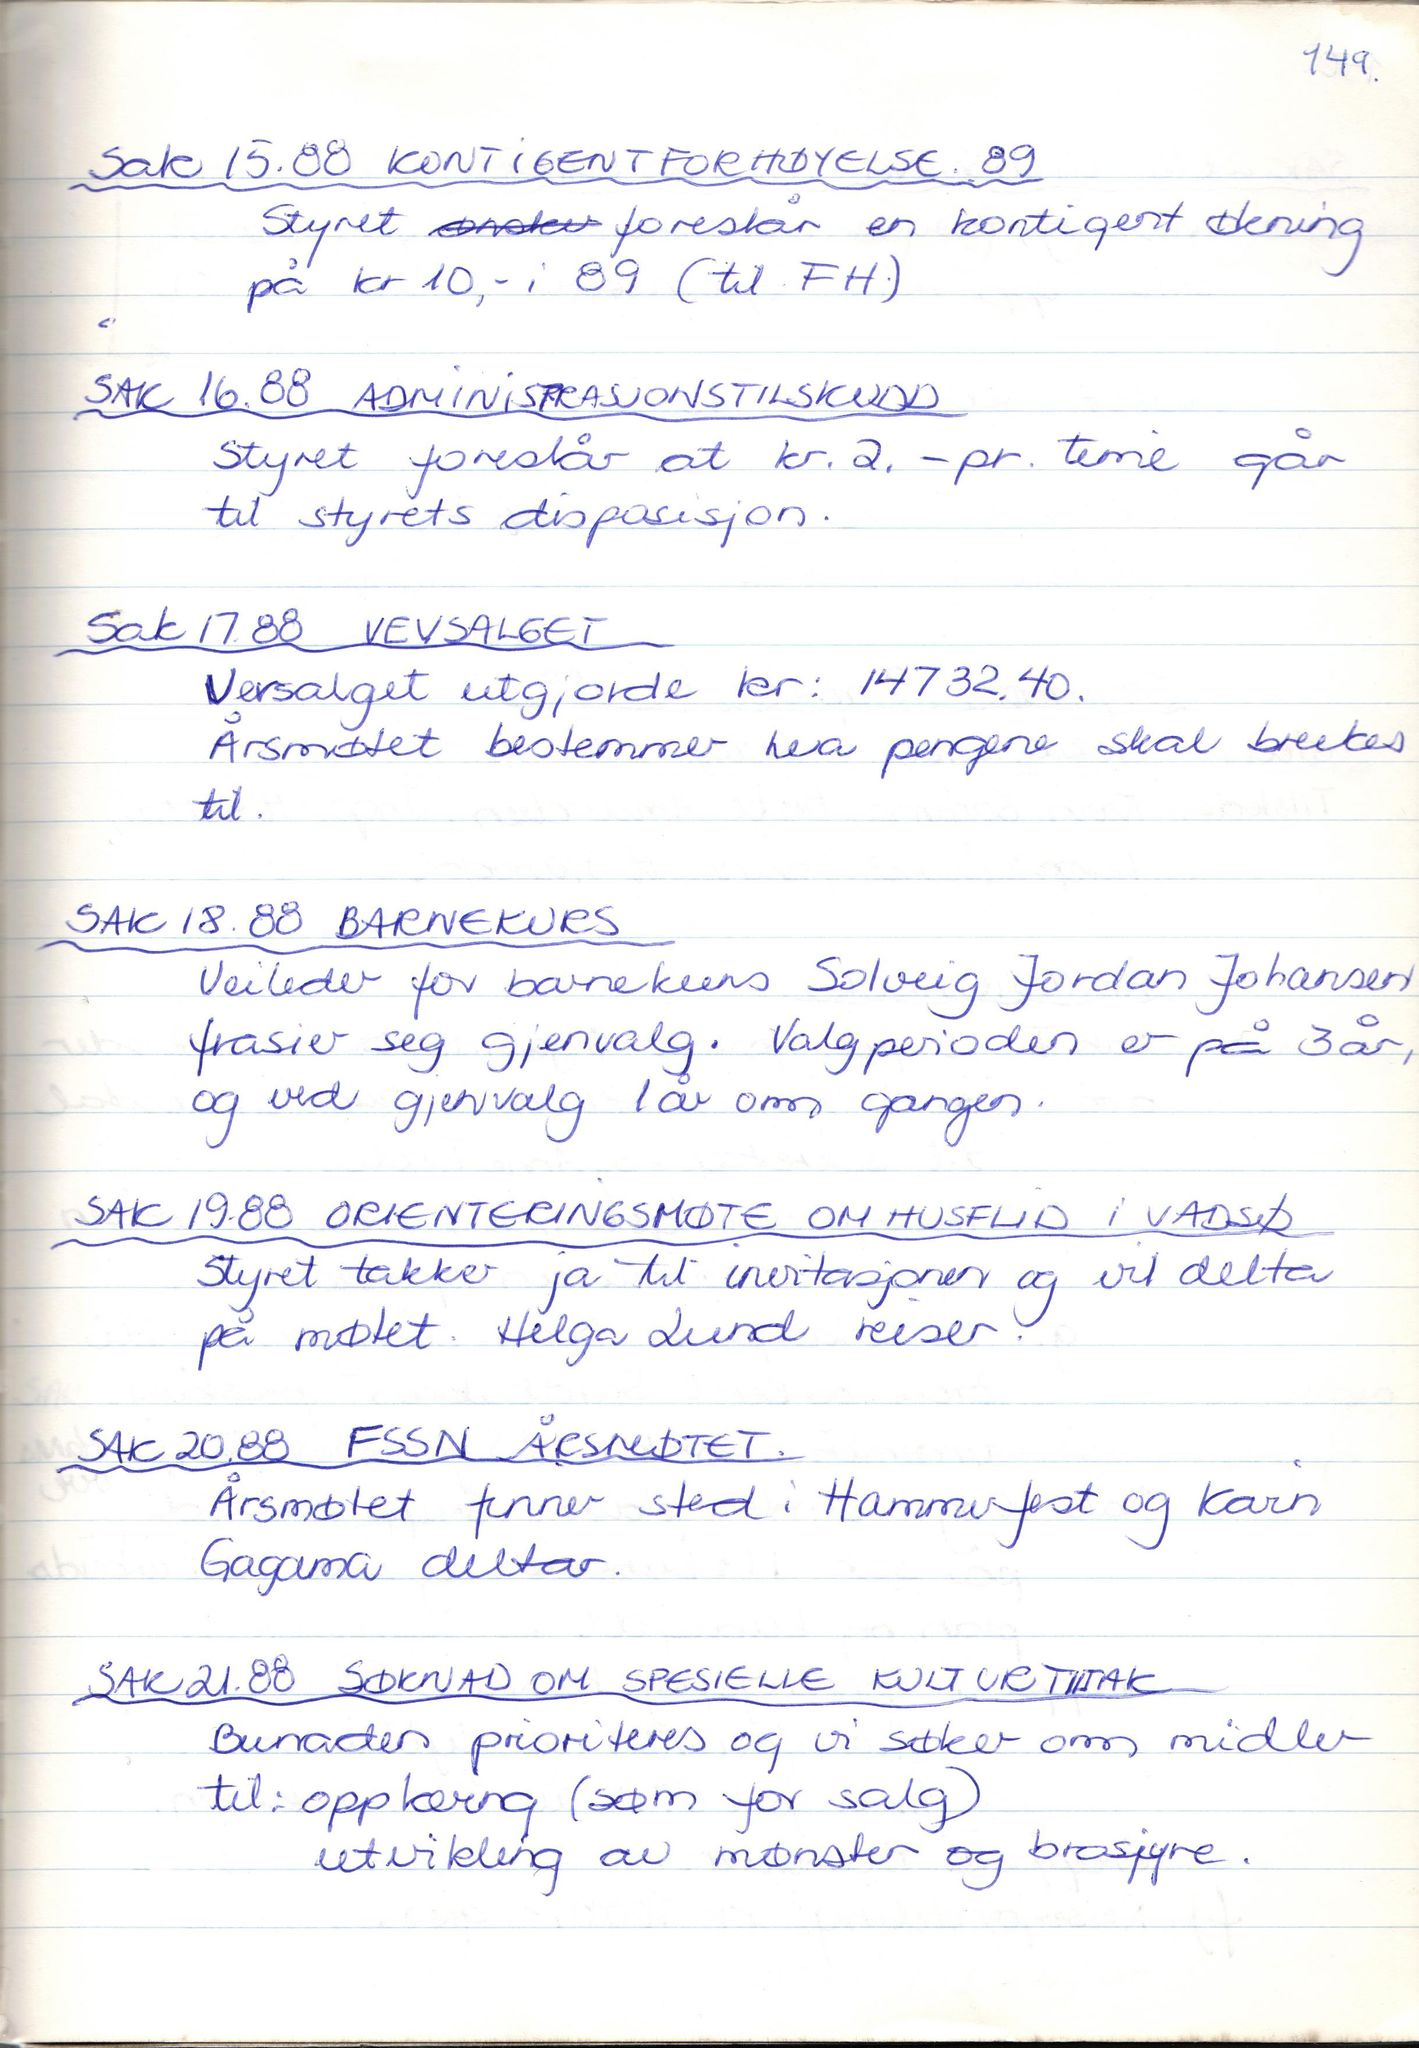 149.
Sak 15.88 KONTIGENTFORHØYELSE. 89
Styret ønsker foreslår en kontigent økning
på kr 10,- i 89 (til FH.)
SAK 16.88 ADMINISTRASJONSTILSKUDD
Styret foreslår at kr. 2,- pr. time går
til styrets disposisjon.
Sak 17.88 VEVSALGET
Vevsalget utgjorde kr: 14732.40.
Årsmøtet bestemmer hva pengene skal brukes
til.
SAK 18.88 BARNEKURS
Veileder for barnekurs Solveig Jordan Johansen
frasier seg gjenvalg. Valgperioden er på 3 år,
og ved gjenvalg 1 år om gangen.
SAK 19.88 ORIENTERINGSMØTE OM HUSFLID I VADSØ
Styret takker ja til invitasjonen og vil delta
på møtet. Helga Lund reiser.
SAK 20.88 FSSN ÅRSMØTET.
Årsmøtet finner sted i Hammerfest og Karin
Gagama deltar.
SAK 21.88 SØKNAD OM SPESIELLE KULTURTILTAK
Bunaden prioriteres og vi søker om midler
til: opplæring (søm for salg)
utvikling av mønster og brosjyre.